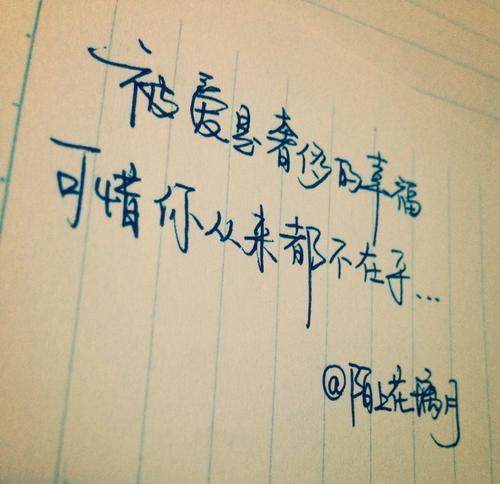 被爱是奢侈的幸福
可惜你从来都不在乎...
@陌上花漓月